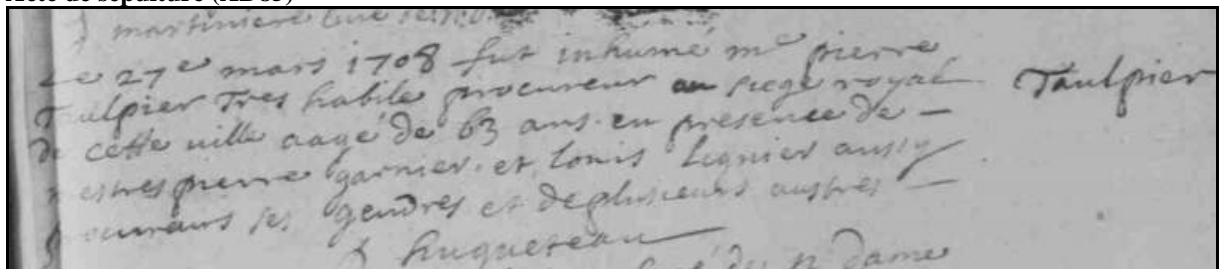 martiniere Curé
Le 27e mars 1708 fut inhumé me pierre
Taulpier Tres habile procureur au siege royal
de cette ville aagé de 63 ans en presence de
mestres pierre garnier et Louis Lignier aussy
procureurs ses gendres et de plusieurs austres
huquereau
Taulpier
n dame